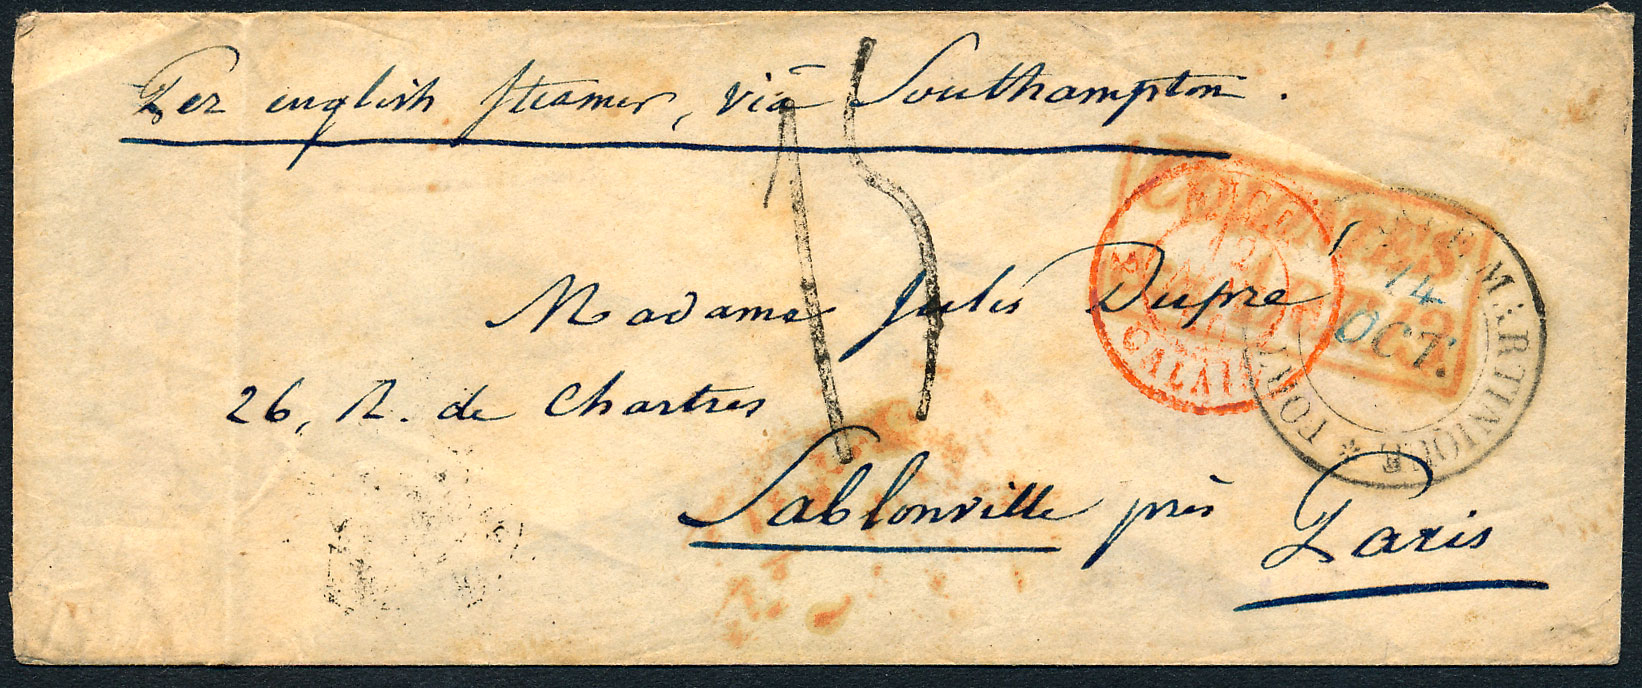 Per english steamer, viâ Southampton.
15
Madame Jules Dupré
26, R. de Chartres
Sablonville près Paris
COLONIES
ART. 13
COL.
12
CALAIS
MARTINIQUE *
14
OCT.